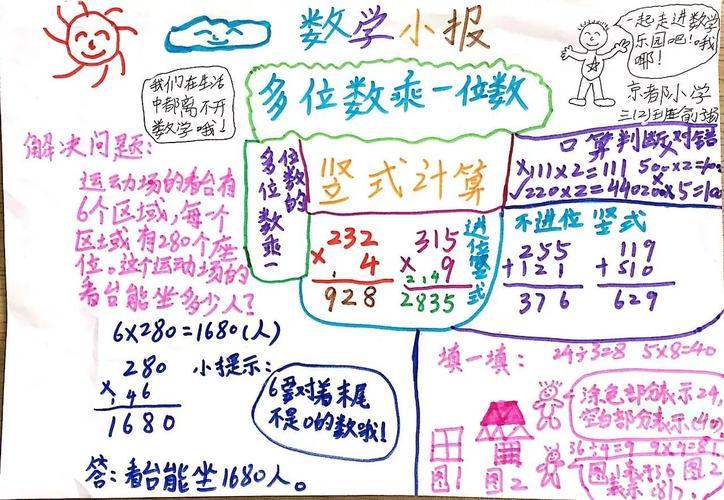 数学小报
一起走进数学
乐园吧！哦
耶！
我们在生活
中都离不开
数学哦！
多位数乘一位数
京都小学
解决问题：
运动场的看台有
6个区域，每一个
区域有280个座
位。这个运动场的
看台能坐多少人？
6×280=1680(人)
280
×46
1680
小提示：
6要对着末尾
不是0的数哦！
答：看台能坐1680人。
多位数乘一
位数的
竖式计算
232
× 4
928
315
× 9
214
2835
进位竖式
口算判断对错
×111×2=111
√220×2=440
不进位竖式
255
+121
376
119
+510
629
填一填：
24÷3=8 5×8=40
涂色部分表示24，
空白部分表示(40)
36÷4=9 9×9=81
图1
图2